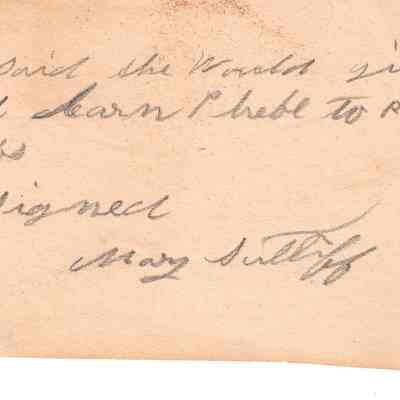 said she Would gi
learn Phebe to R
signed
Mary Sutliff